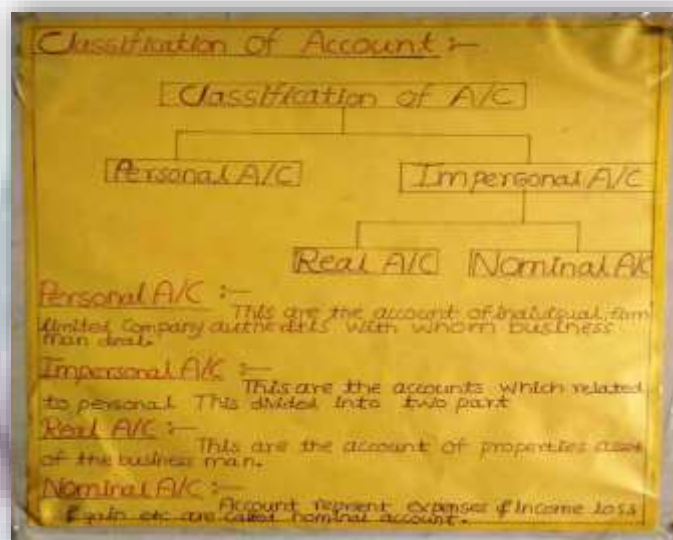 Classification of Account :-
Classification of A/C
Personal A/C Impersonal A/C
Real A/C Nominal A/C
Personal A/C :-
This are the account of individual, firm
limited Company with whom business
man deal.
Impersonal A/C :-
This are the accounts which related
to personal This divided into two part
Real A/C :-
This are the account of properties asset
of the business man.
Nominal A/C :-
Account represent expenses & income loss
& gain etc are called nominal account.